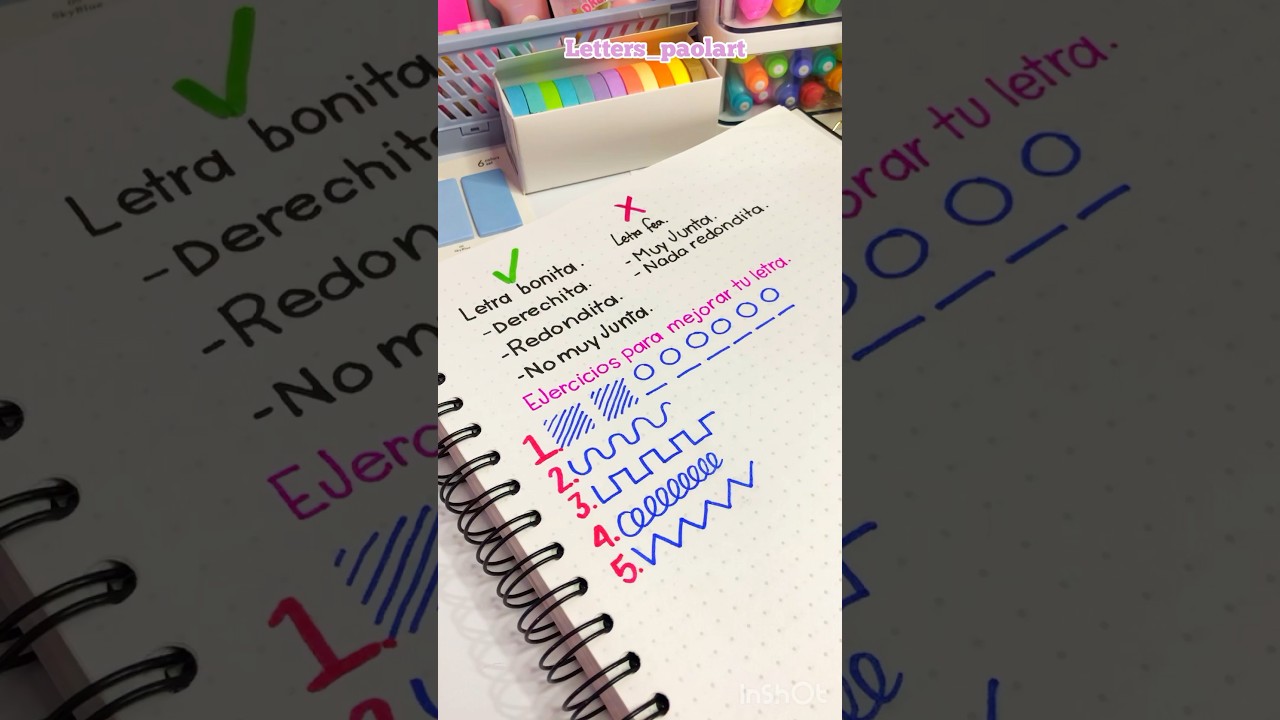 Letters_paolart
X
Letra fea.
- Muy Junta.
- Nada redondita.
Letra bonita.
-Derechita.
-Redondita.
-No muy Junta.
Ejercicios para mejorar tu letra.
1.
2.
3.
4.
5.
InShOt